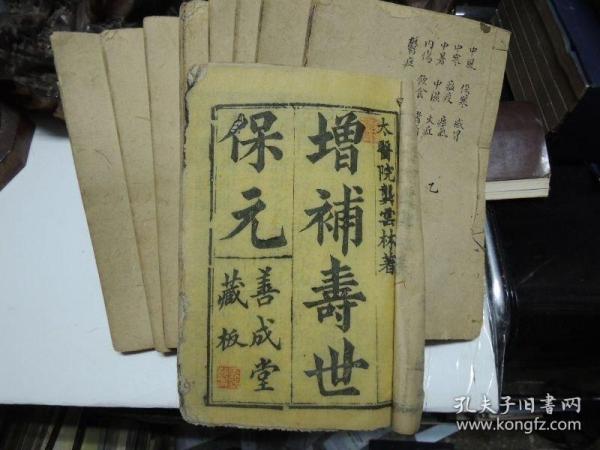 太醫院龔雲林著
增補壽世
保元
善成堂
藏板
中風 傷寒 感冒
中寒 瘟疫 瘴氣
中暑 中濕 火症
內傷 飲食
鬱症
乙
孔夫子旧书网
kongfz.com